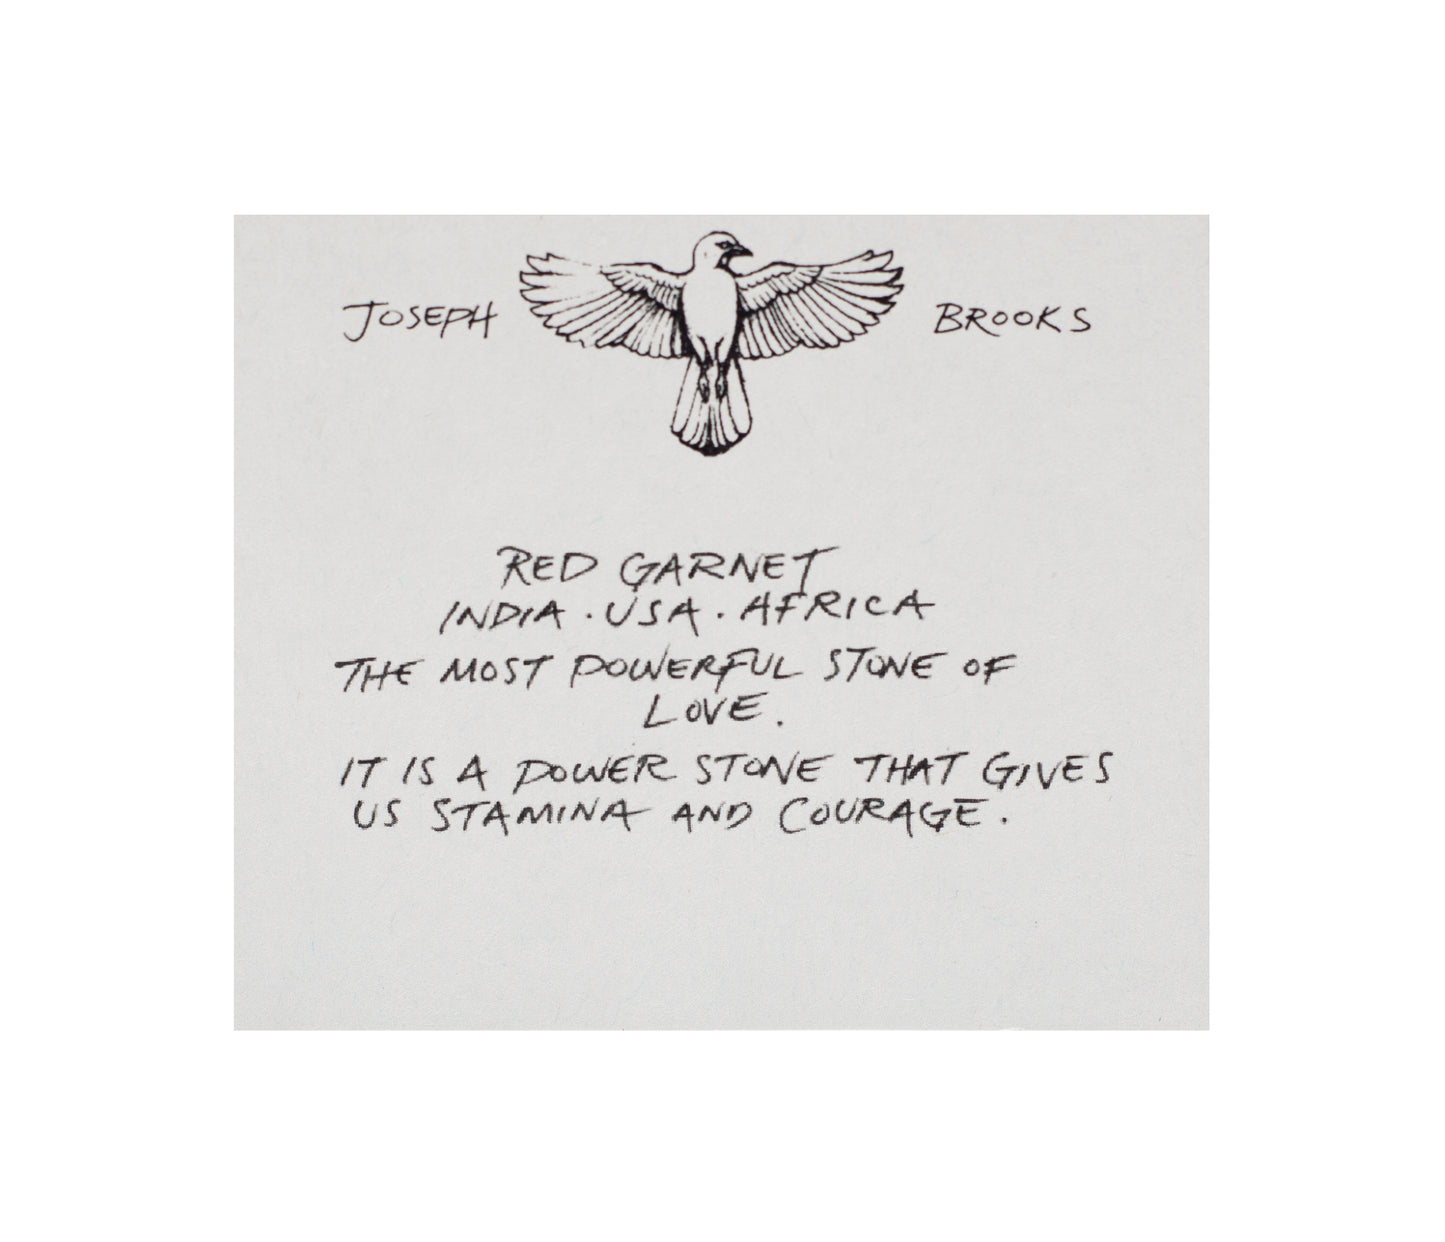 JOSEPH BROOKS
RED GARNET
INDIA . USA . AFRICA
THE MOST POWERFUL STONE OF
LOVE.
IT IS A POWER STONE THAT GIVES
US STAMINA AND COURAGE.